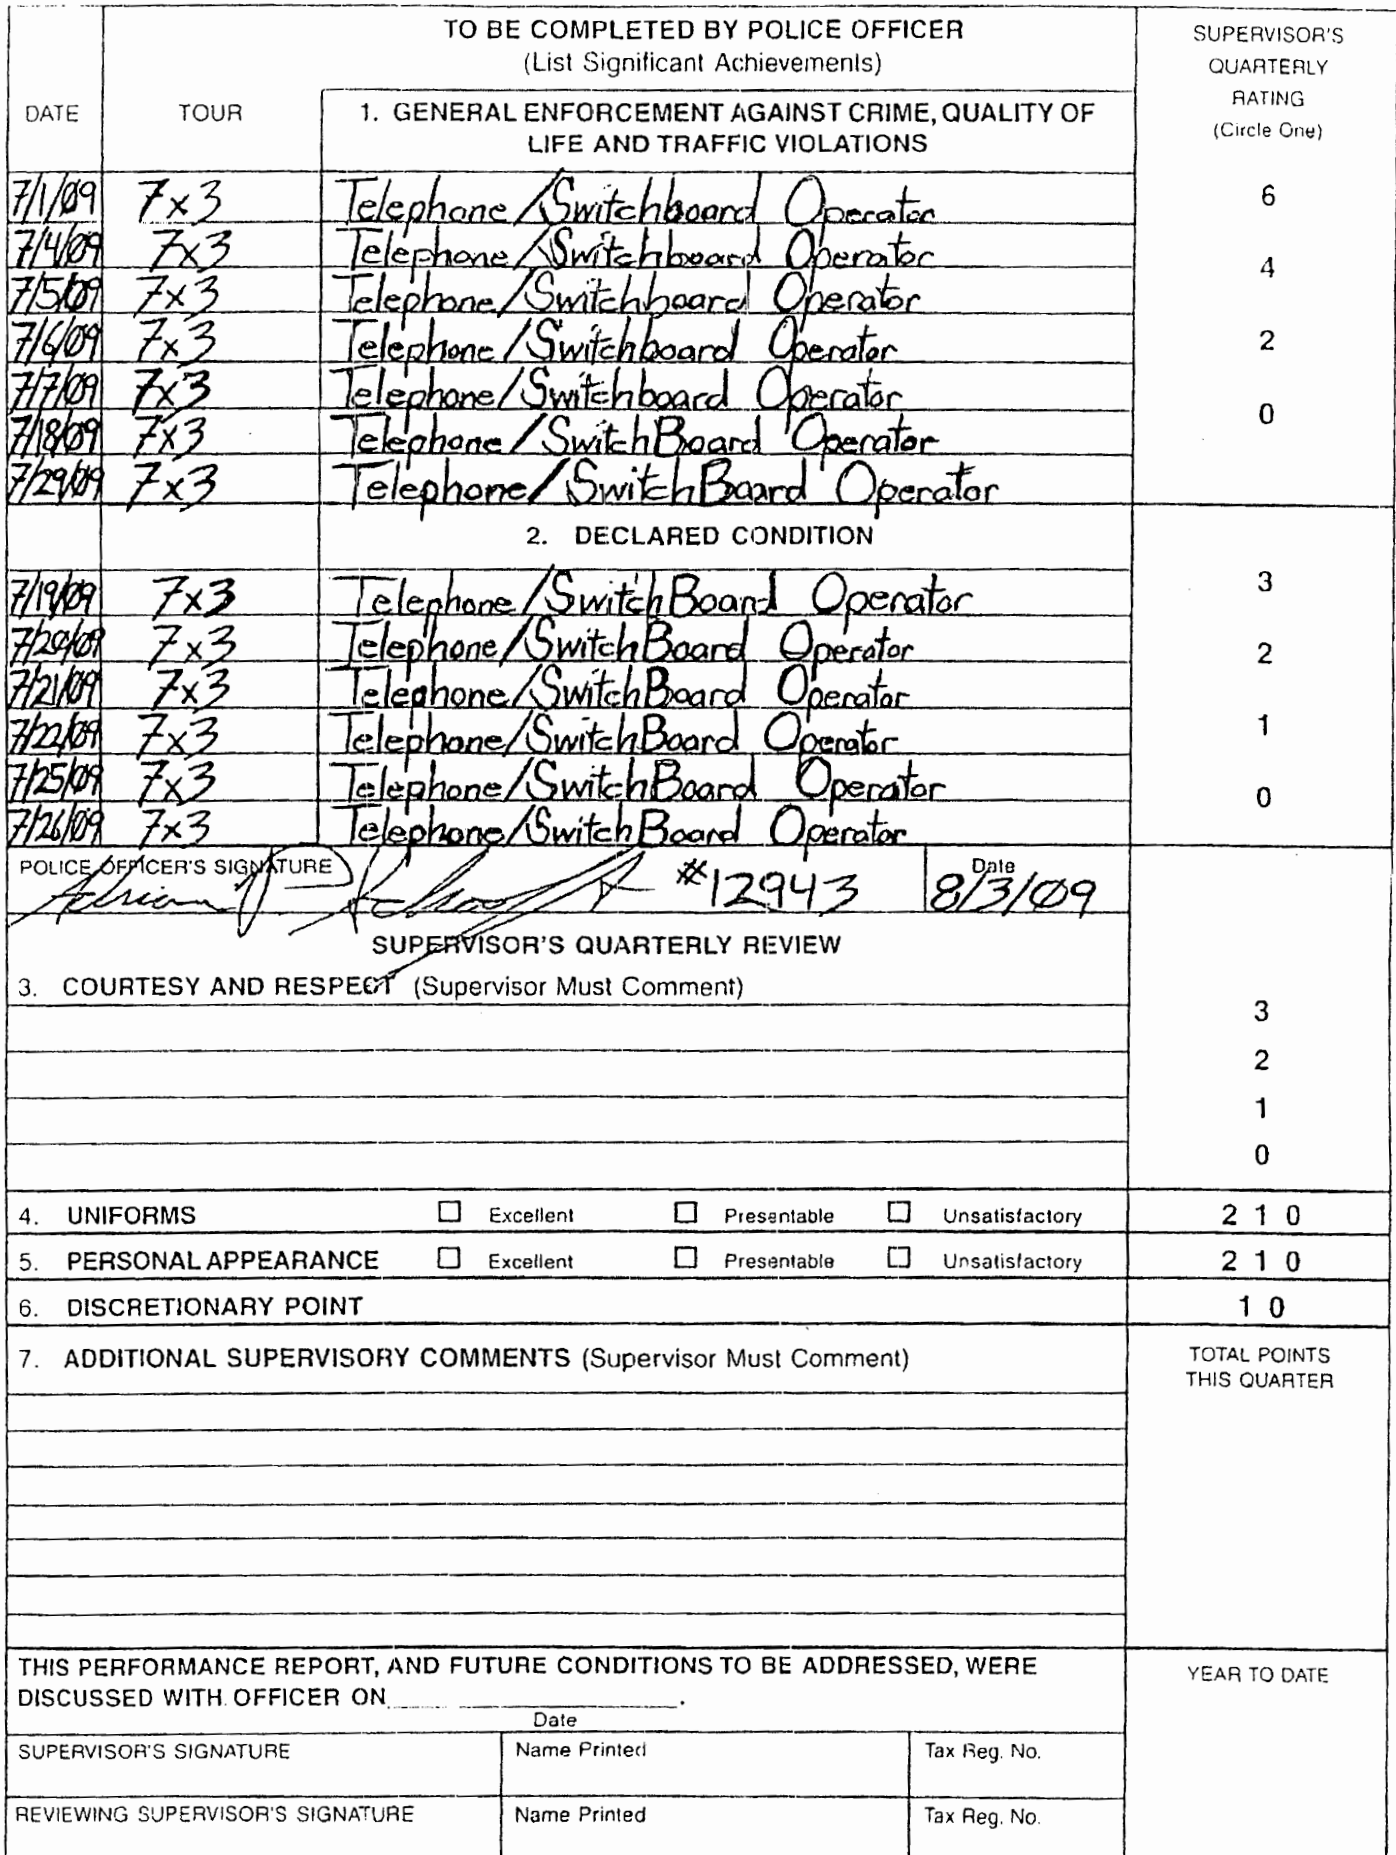 TO BE COMPLETED BY POLICE OFFICER
(List Significant Achievements)
SUPERVISOR'S
QUARTERLY
RATING
(Circle One)
DATE TOUR 1. GENERAL ENFORCEMENT AGAINST CRIME, QUALITY OF
LIFE AND TRAFFIC VIOLATIONS
7/1/09 7x3 Telephone/Switchboard Operator 6
7/4/09 7x3 Telephone/Switchboard Operator
4
7/5/09 7x3 Telephone/Switchboard Operator
7/6/09 7x3 Telephone/Switchboard Operator 2
7/7/09 7x3 Telephone/Switchboard Operator
0
7/18/09 7x3 Telephone/SwitchBoard Operator
7/29/09 7x3 Telephone/SwitchBoard Operator
2. DECLARED CONDITION
7/19/09 7x3 Telephone/SwitchBoard Operator 3
7/20/09 7x3 Telephone/SwitchBoard Operator 2
7/21/09 7x3 Telephone/SwitchBoard Operator
7/22/09 7x3 Telephone/SwitchBoard Operator 1
7/25/09 7x3 Telephone/SwitchBoard Operator
0
7/26/09 7x3 Telephone/SwitchBoard Operator
POLICE OFFICER'S SIGNATURE Date
Adrian #12943 8/3/09
SUPERVISOR'S QUARTERLY REVIEW
3. COURTESY AND RESPECT (Supervisor Must Comment)
3
2
1
0
4. UNIFORMS Excellent Presentable Unsatisfactory 2 1 0
5. PERSONAL APPEARANCE Excellent Presentable Unsatisfactory 2 1 0
6. DISCRETIONARY POINT 1 0
7. ADDITIONAL SUPERVISORY COMMENTS (Supervisor Must Comment)
TOTAL POINTS
THIS QUARTER
THIS PERFORMANCE REPORT, AND FUTURE CONDITIONS TO BE ADDRESSED, WERE
DISCUSSED WITH OFFICER ON .
Date
YEAR TO DATE
SUPERVISOR'S SIGNATURE Name Printed Tax Reg. No.
REVIEWING SUPERVISOR'S SIGNATURE Name Printed Tax Reg. No.